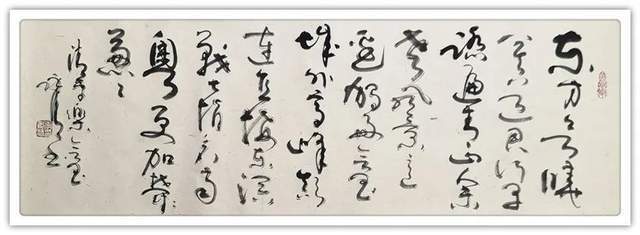 东方欲曉
莫道君行早
踏遍青山人
未老风景这
边独好会昌
城外高峰颠
连直接东溟
戰士指看南
粵更加鬱々
葱々
清平樂会昌